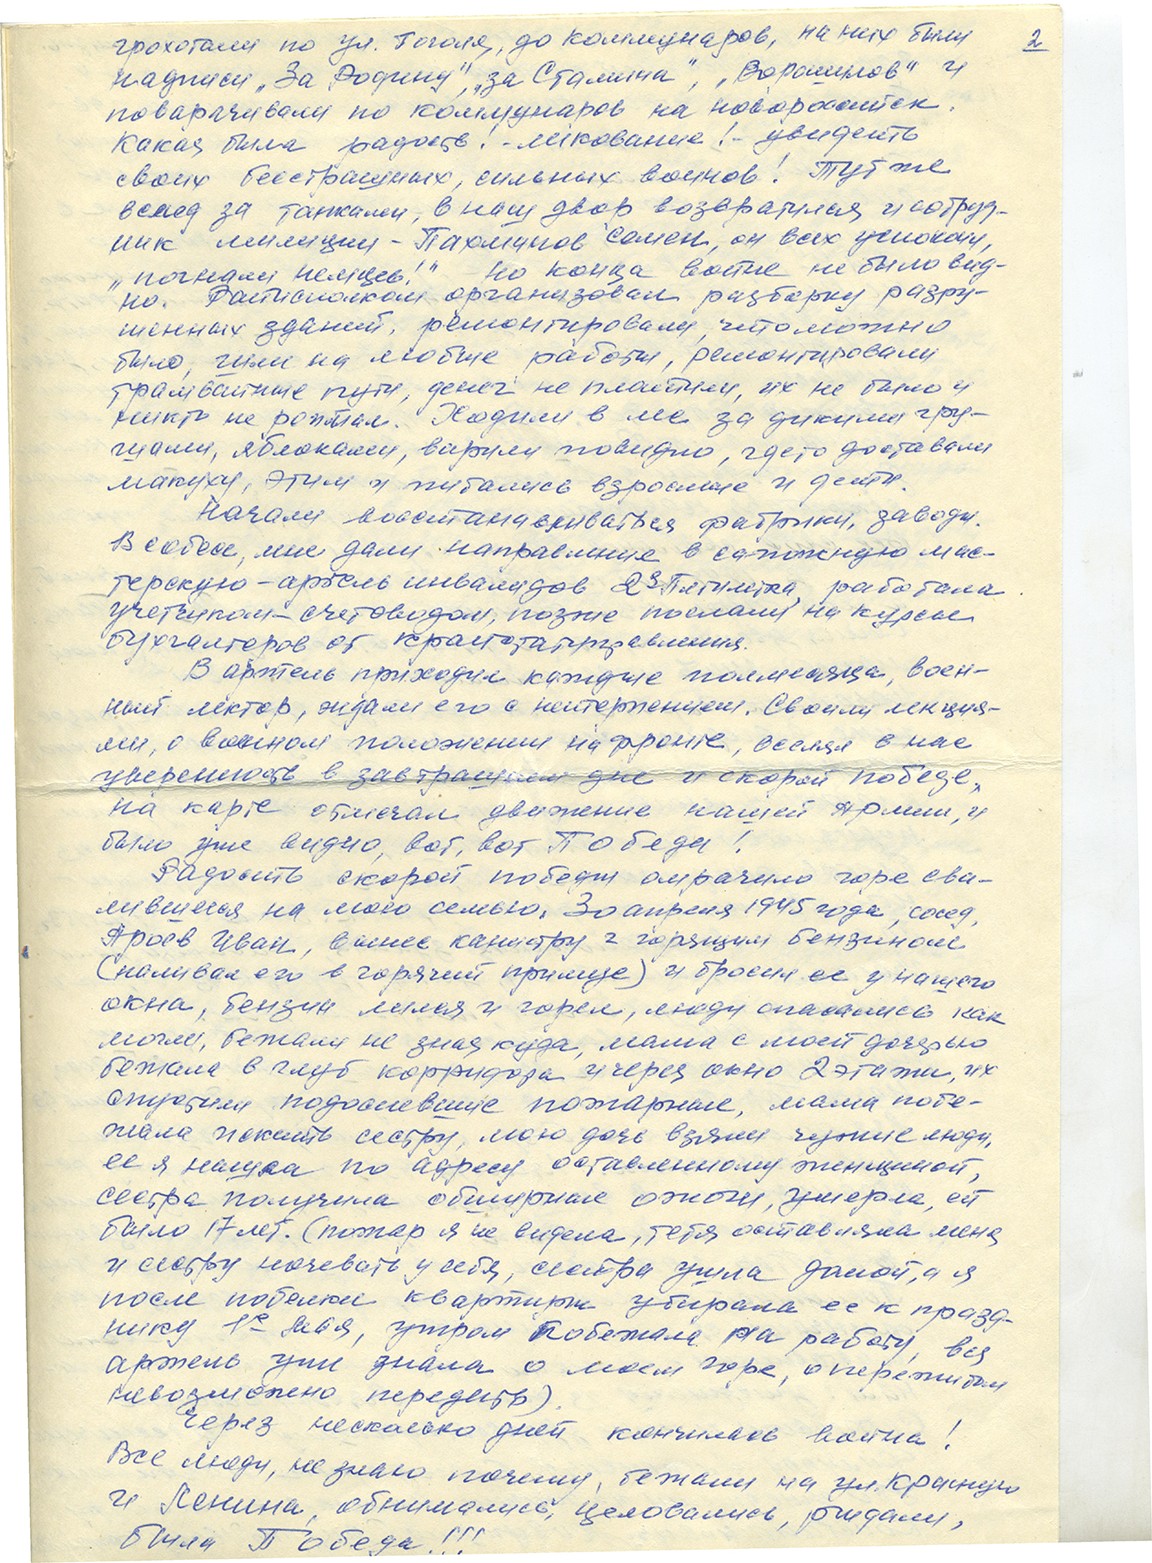 2
грохотали по ул. Гоголя, до коммунаров, на них были
надписи „За Родину", „за Сталина", „Ворошилов" и
поварачивали по коммунаров на новороссийск.
Какая была радость! - ликование! - увидеть
своих бесстрашных, сильных воинов! Тут же
вслед за танками, в наш двор возвратился и сотруд-
ник милиции - Пахмунов Семен, он всех успокоил,
„погнали немцев!" Но конца войне не было вид-
но. Райисполком организовал разборку разру-
шенных зданий, ремонтировали, что можно
было, шли на любые работы, ремонтировали
трамвайные пути, денег не платили, их не было и
никто не роптал. Ходили в лес за дикими гру-
шами, яблоками, варили повидло, где то доставали
макуху, этим и питались взрослые и дети.
Начали восстанавливаться фабрики, заводы.
В собесе, мне дали направление в сапожную мас-
терскую - артель инвалидов 2я Пятилетка, работала
учетчиком - счетоводом, позже послали на курсы
бухгалтеров от
В артель приходил каждые полмесяца, воен-
ный лектор, ждали его с нетерпением. Своими лекция-
ми, о военном положении на фронте, вселял в нас
уверенность в завтрашнем дне и скорой победе,
на карте отмечал движение нашей Армии, и
было уже видно, вот, вот Победа!
Радость скорой победы омрачило горе сва-
лившееся на мою семью. 30 апреля 1945 года, сосед,
Ароев Иван, вынес канистру с горящим бензином
(наливал его в горячий примус) и бросил ее у нашего
окна, бензин лился и горел, люди спасались как
могли, бежали не зная куда, мама с моей дочерью
бежала в глуб корридора и через окно 2 этажа, их
спустили подоспевшие пожарные, мама побе-
жала искать сестру, мою дочь взяли чужие люди,
ее я нашла по адресу оставленному женщиной,
сестра получила обширные ожоги, умерла, ей
было 17 лет. (пожар я не видела, тетя оставляла меня
и сестру ночевать у себя, сестра ушла домой, а я
после побелки квартиры убирала ее к празд-
нику 1е Мая, утром побежала на работу, вся
артель уже знала о моем горе, о пережитом
невозможно передать).
Через несколько дней кончилась война!
Все люди, не знаю почему, бежали на ул. Красную
и Ленина, обнимались, целовались, рыдали,
была Победа!!!